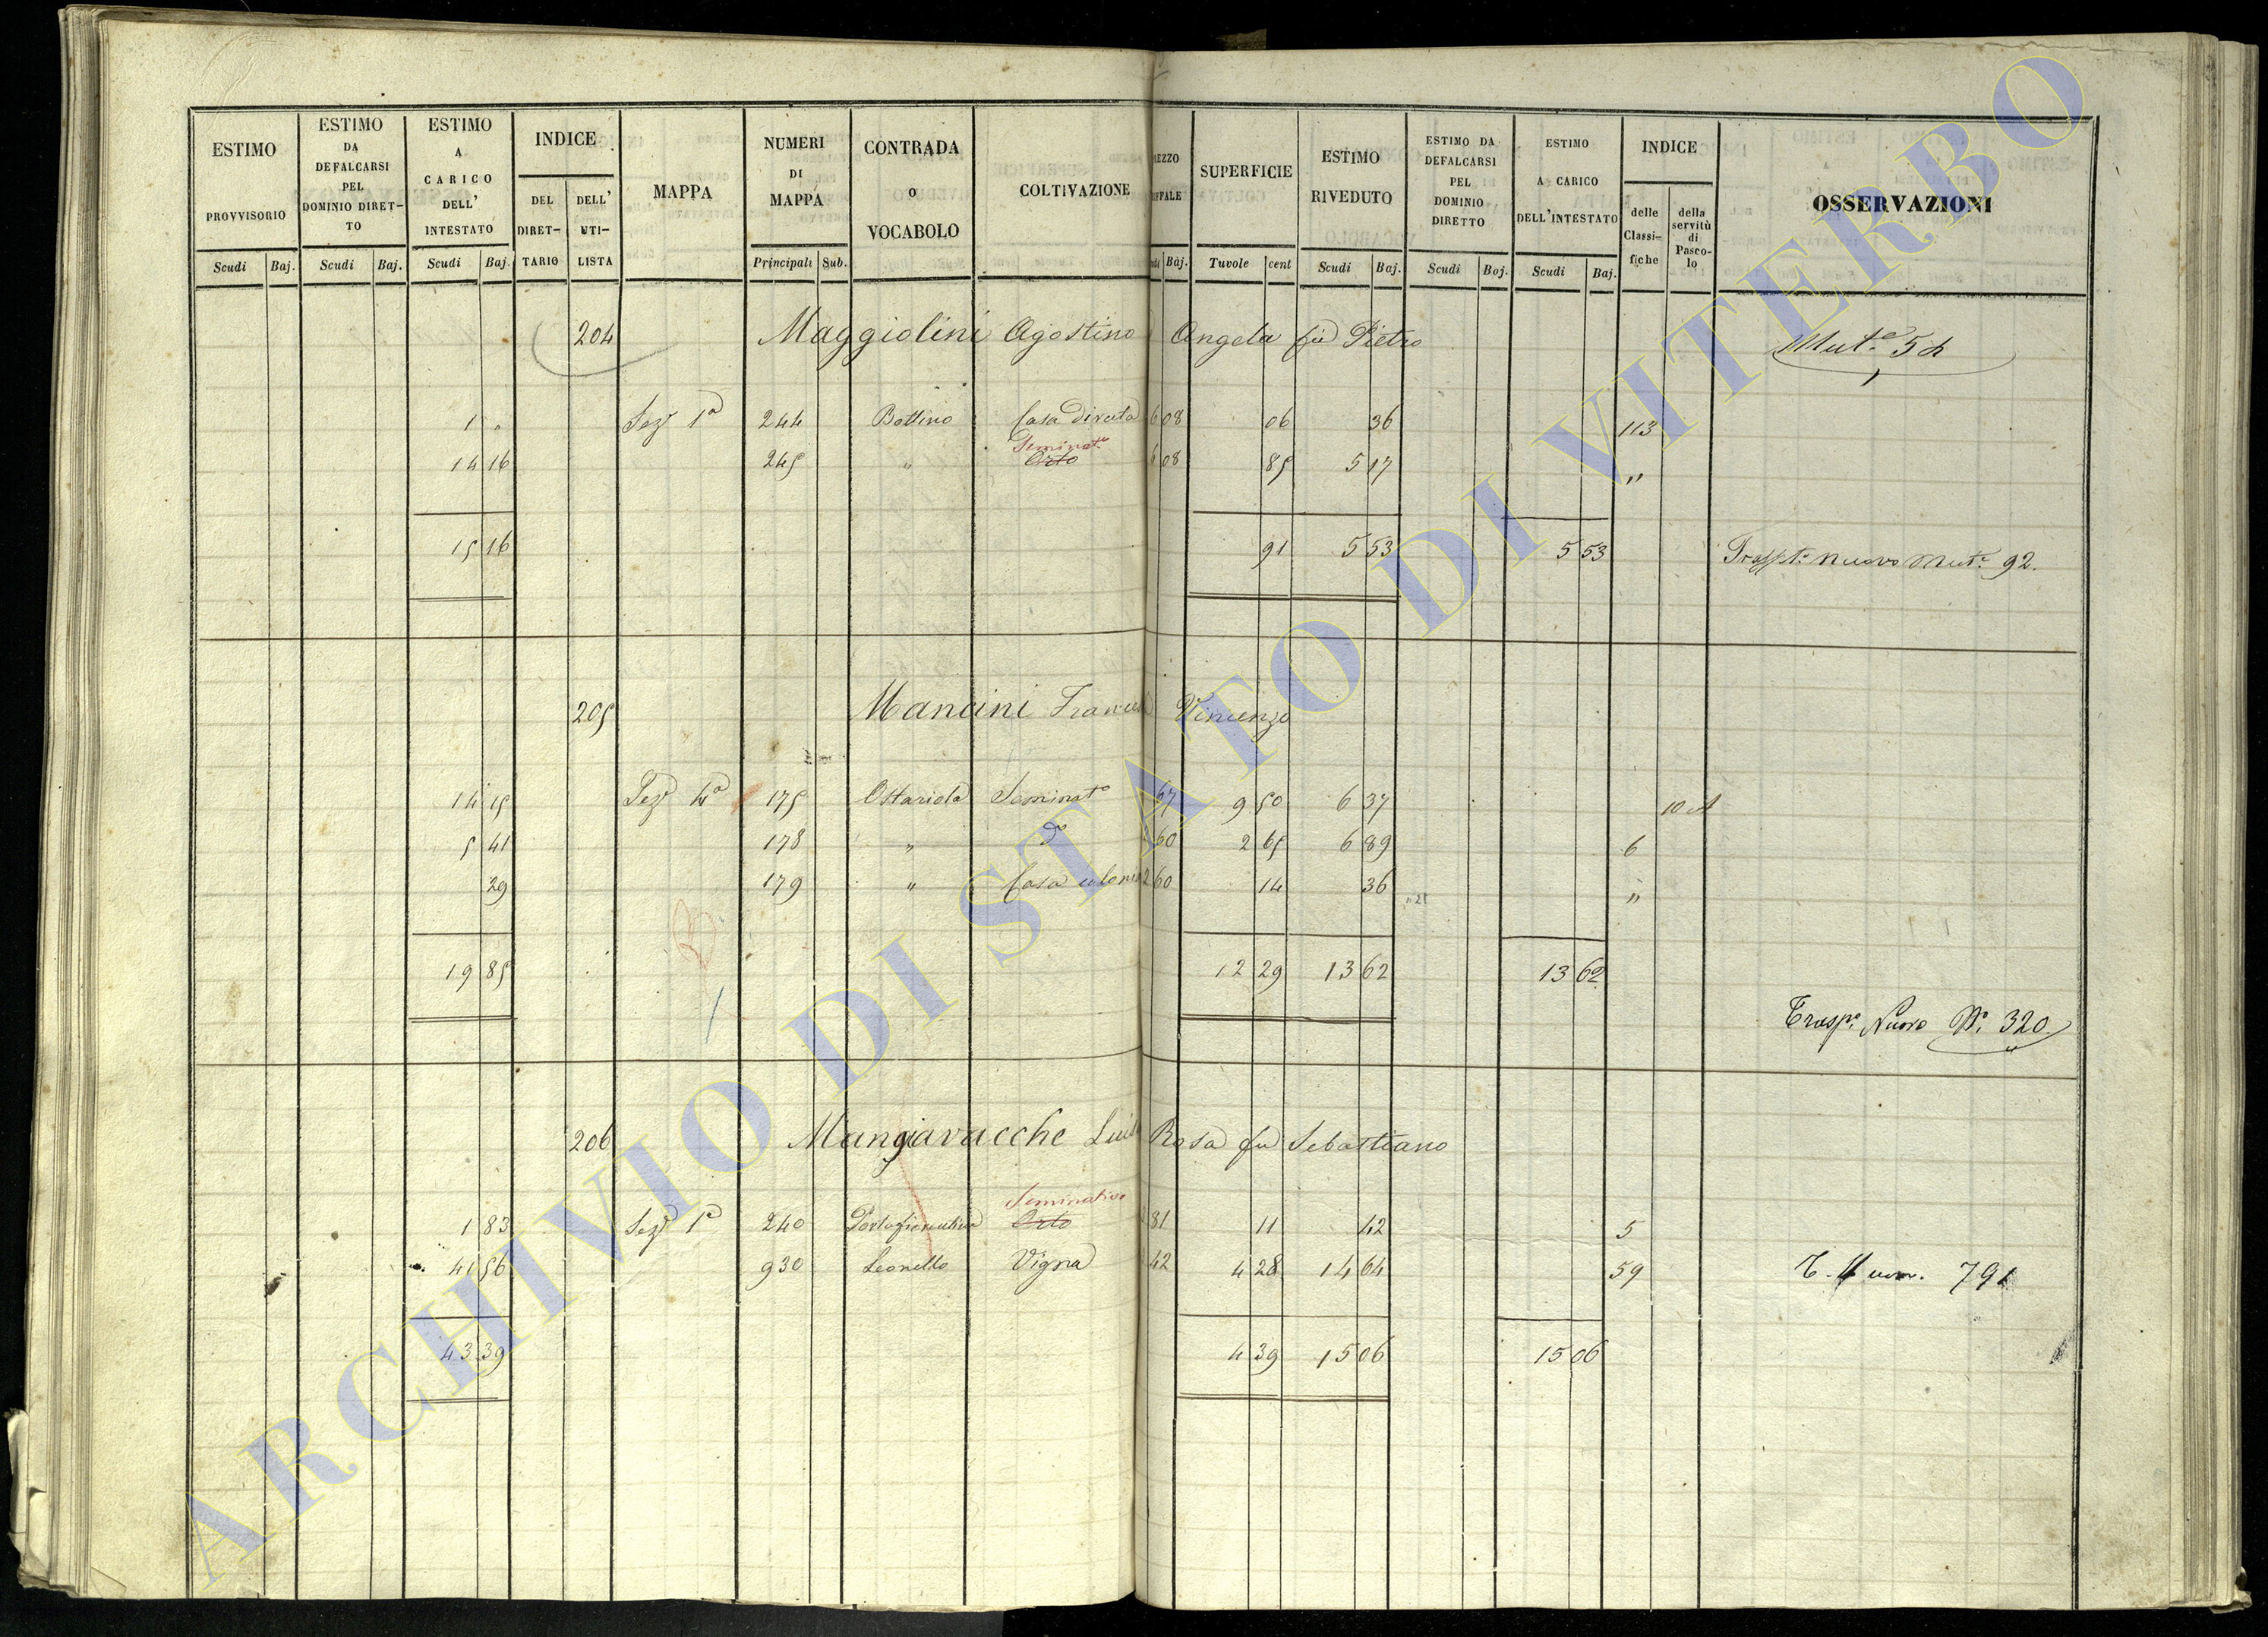 ESTIMO PROVVISORIO
ESTIMO DA DEFALCARSI PEL DOMINIO DIRET-TO
ESTIMO A CARICO DELL' INTESTATO
INDICE
DEL DIRET-TARIO
DELL' UTI-LISTA
MAPPA
NUMERI DI MAPPA
CONTRADA O VOCABOLO
COLTIVAZIONE
SUPERFICIE
ESTIMO RIVEDUTO
ESTIMO DA DEFALCARSI PEL DOMINIO DIRETTO
ESTIMO A CARICO DELL'INTESTATO
INDICE
delle Classi-fiche
della servitù di Pasco-lo
OSSERVAZIONI
Scudi Baj. Scudi Baj. Scudi Baj. Principali Sub. Baj. Tavole cent Scudi Baj. Scudi Baj. Scudi Baj.
204 Maggiolini Agostino Angela fu Pietro
1 " Sez. 1a 244 Bottino Casa diruta 6 08 06 36 113
Seminato
14 16 245 " Orto 6 08 85 5 17 "
15 16 91 5 53 5 53 nuovo Mut. 92.
205 Mancini Vincenzo
14 15 Sez. 4a 175 Ostariola Seminato 67 9 50 6 37
5 41 178 " do 60 2 65 6 89 6
29 179 " Casa colonica 2 60 14 36 "
19 85 12 29 13 62 13 62
Trasp. Nuovo No. 320
206 Mangiavacche Rosa fu Sebastiano
Seminativo
1 83 Sez. 1a 240 Portafiorentina Orto 81 11 42 5
41 56 930 Leonello Vigna 42 4 28 14 64 59 791
43 39 4 39 15 06 15 06
ARCHIVIO DI STATO DI VITERBO